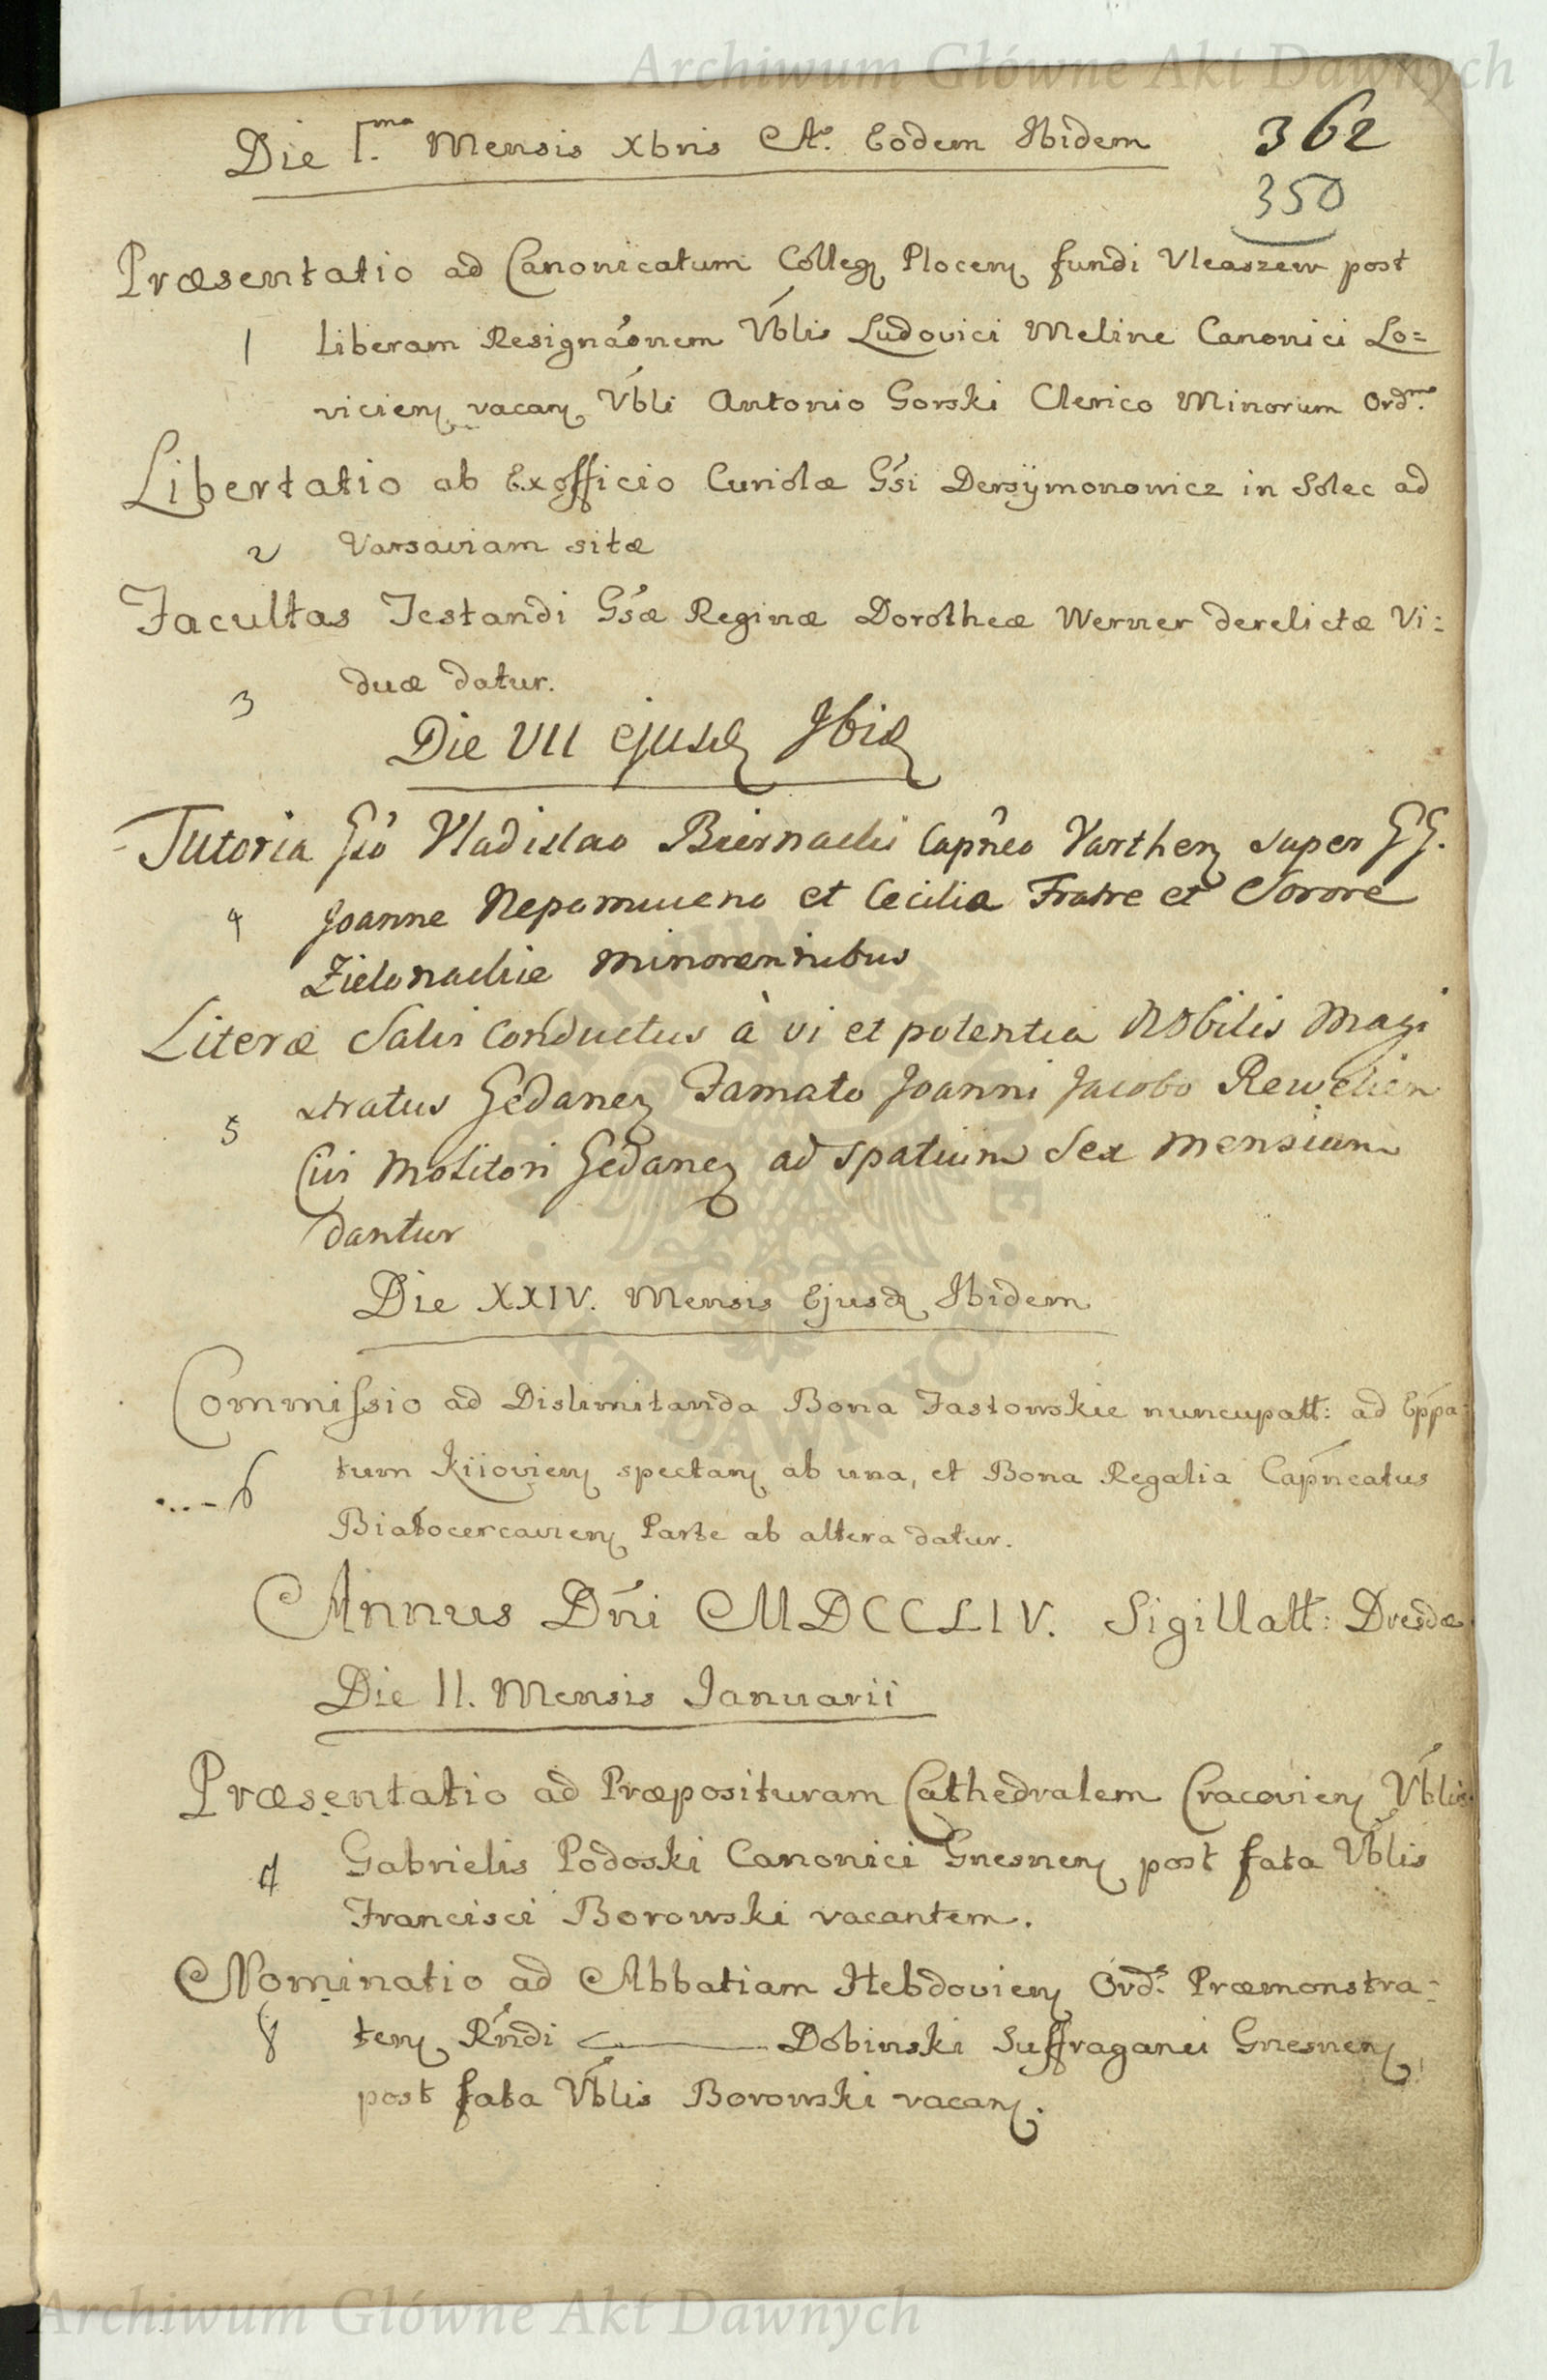 Archiwum Główne Akt Dawnych
Die I.ma Mensis Xbris Ao. Eodem Ibidem
362
350
Præsentatio ad Canonicatum Colleg Plocen fundi Uleaszew post
1 liberam Resignãonem Vblis Ludovici Meline Canonici Lo=
vicien vacan Vbli Antonio Gorski Clerico Minorum Ord.
Libertatio ab Exofficio Curiolæ Gsi Derszymonowicz in Solec ad
2 Varsaviam sitæ
Facultas Testandi Gsæ Reginæ Dorotheæ Werner derelictæ Vi:
3 duæ datur.
Die VII ejusd Ibid
Tutoria Gso Vladislao Biernacki Capneo Varthen super GG.
4 Joanne Nepomuceno et Cecilia Fratre et Sorore
Zielonackie minorennibus
Literæ Salvi Conductus à vi et potentia Nobilis Magi
5 stratus Gedanen Famato Joanni Jacobo
Civi Molitori Gedanen ad spatium Sex mensium
dantur
Die XXIV. Mensis Ejusd Ibidem
Commissio ad Dislimitanda Bona Fastowskie nuncupatt: ad Eppa:
6 tum Kiiovien spectan ab una, et Bona Regalia Capneatus
Białocercavien Parte ab altera datur.
Annus Dni MDCCLIV. Sigillatt: Dresdæ
Die II. Mensis Januarii
Præsentatio ad Præposituram Cathedralem Cracovien Vblis
7 Gabrielis Podoski Canonici Gnesnen post fata Vblis
Francisci Borowski vacantem.
Nominatio ad Abbatiam Hebdovien Ords. Præmonstra-
8 ten Rndi ——— Dobinski Suffraganei Gnesnen
post fata Vblis Borowski vacan.
Archiwum Główne Akt Dawnych